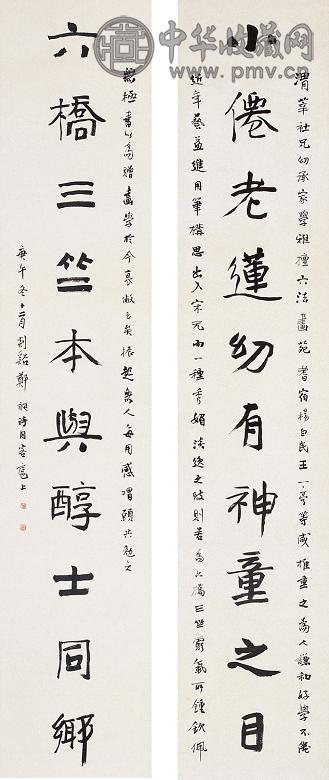 中华收藏网
www.pmv.cn
渭莘社兄幼承家學雅擅六法畫苑耆宿楊白民王一亭等咸推重之為人謙和好學不倦
小僊老蓮幼有神童之目
近年藝益進用筆構思出入宋元而一種秀媚淡逸之致則若為六橋三竺靈氣所鍾欽佩
無極書以為贈畫學於今衰敝矣振起無人每用感喟願共勉之
六橋三竺本與醇士同鄉
庚午冬十二月剡谿鄭昶時同客滬上